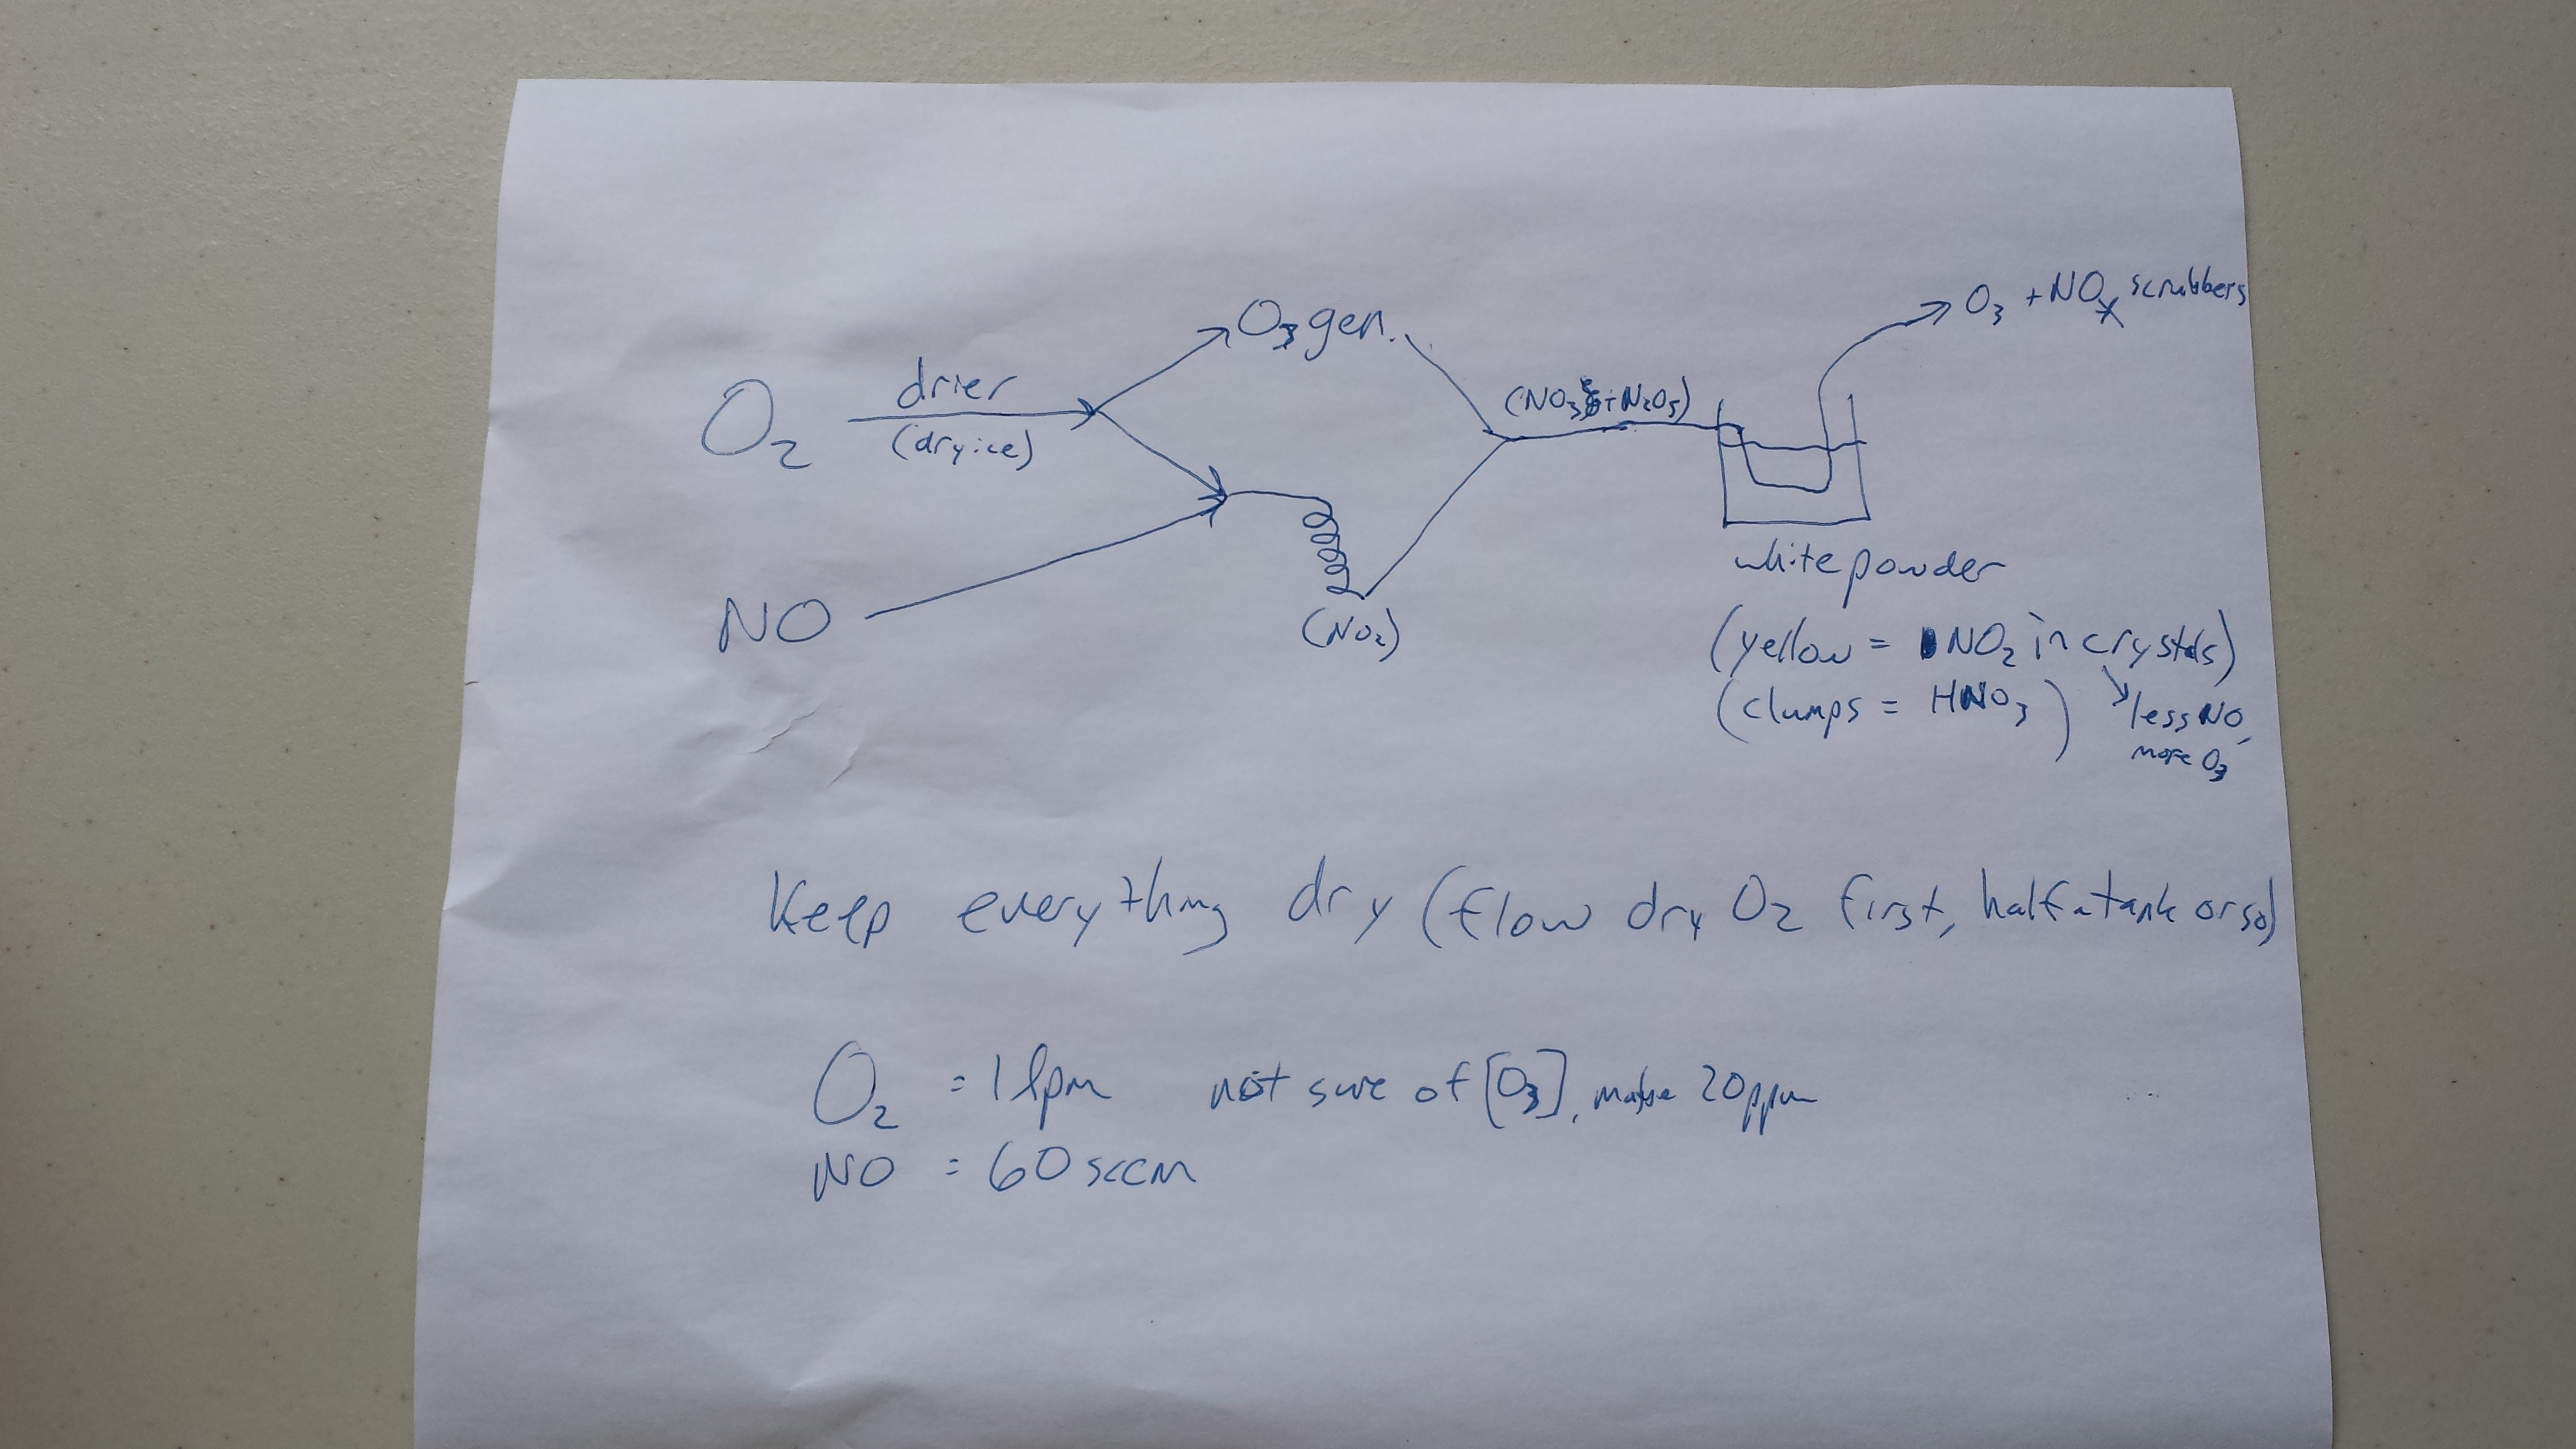 O₃ + NOₓ scrubbers
O₃ gen.
drier
O₂
(dry ice)
(NO₃ + N₂O₅)
NO
(NO₂)
white powder
(yellow = NO₂ in crystals)
(clumps = HNO₃)
less NO,
more O₃
Keep everything dry (flow dry O₂ first, half a tank or so)
O₂ = 1 lpm not sure of [O₃], maybe 20ppm
NO = 60 sccm